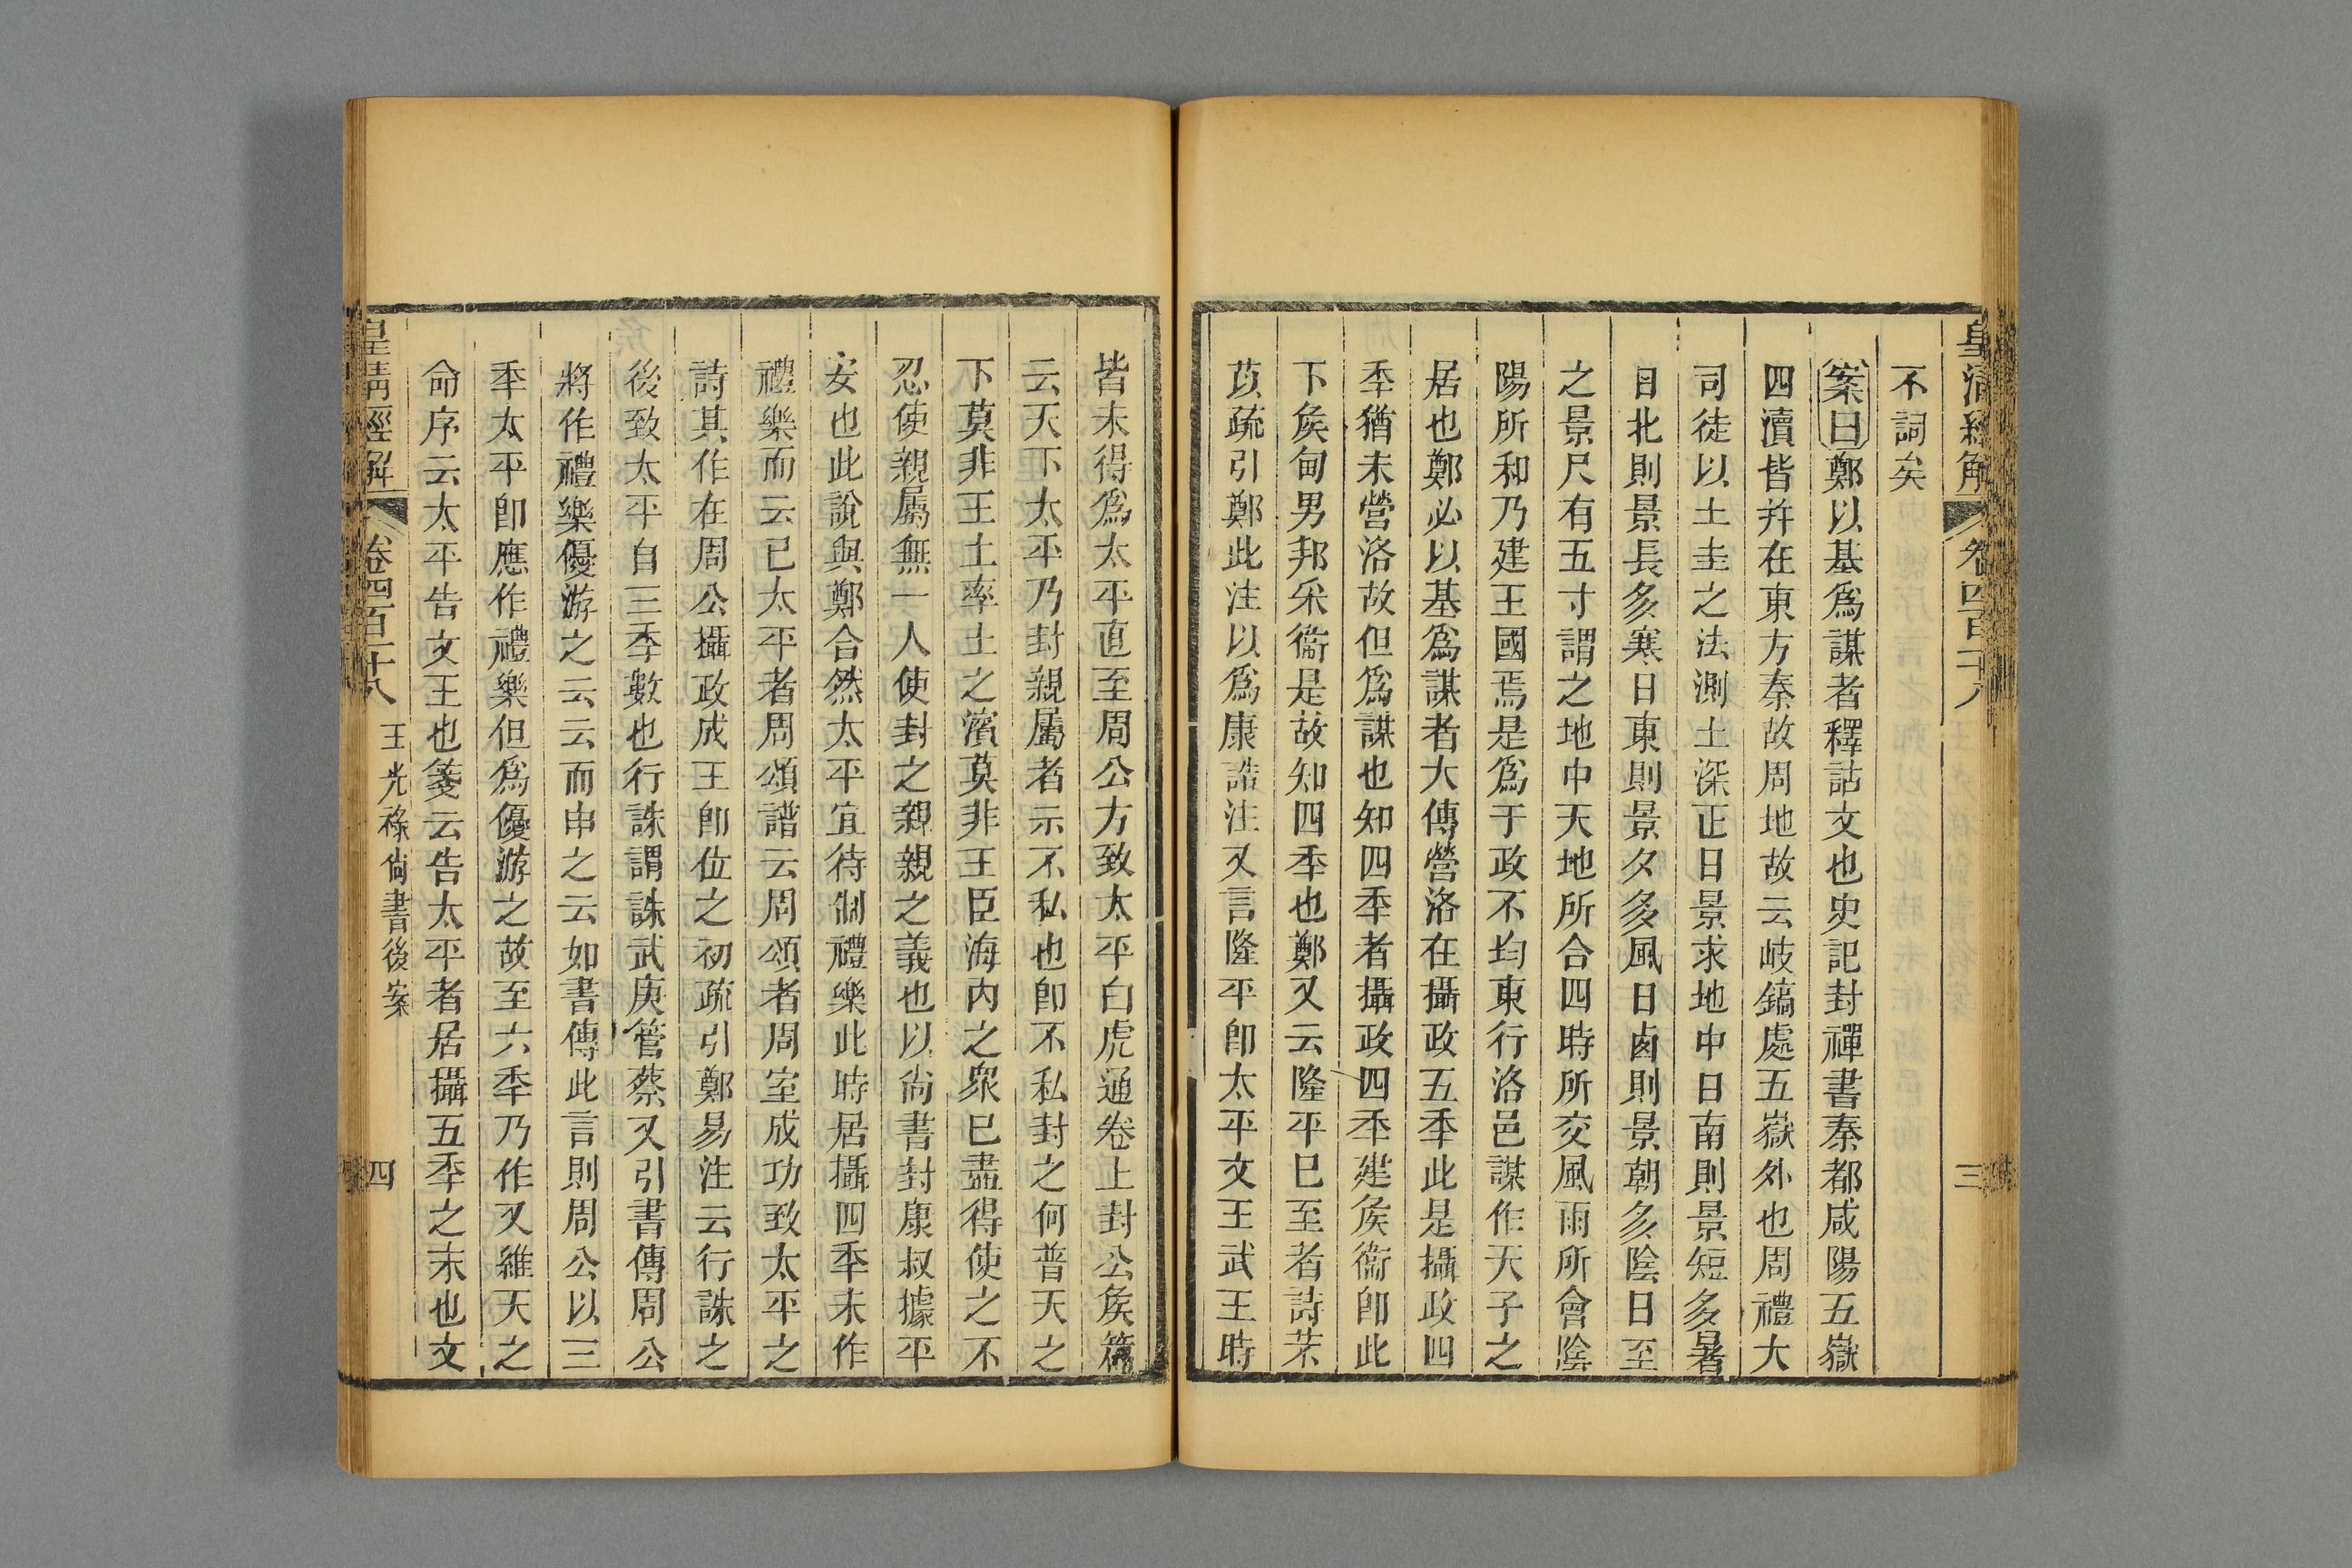 皇清經解
卷四百二十八
三
不詞矣
案曰鄭以基爲謀者釋詁文也史記封禪書秦都咸陽五嶽
四瀆皆并在東方秦故周地故云岐鎬處五嶽外也周禮大
司徒以土圭之法測土深正日景求地中日南則景短多暑
日北則景長多寒日東則景夕多風日卤則景朝多陰日至
之景尺有五寸謂之地中天地所合四時所交風雨所會陰
陽所和乃建王國焉是爲于政不均東行洛邑謀作天子之
居也鄭必以基爲謀者大傳營洛在攝政五季此是攝政四
季猶未營洛故但爲謀也知四季者攝政四季建矦衞卽此
下矦甸男邦采衞是故知四季也鄭又云隆平已至者詩芣
苡疏引鄭此注以爲康誥注又言隆平卽太平文王武王時
皆未得爲太平直至周公方致太平白虎通卷上封公矦篇
云天下太平乃封親屬者示不私也卽不私封之何普天之
下莫非王土率土之濱莫非王臣海內之衆已盡得使之不
忍使親屬無一人使封之親親之義也以尙書封康叔據平
安也此說與鄭合然太平宜待制禮樂此時居攝四季未作
禮樂而云已太平者周頌譜云周頌者周室成功致太平之
詩其作在周公攝政成王卽位之初疏引鄭易注云行誅之
後致太平自三季數也行誅謂誅武庚管蔡又引書傳周公
將作禮樂優游之云云而申之云如書傳此言則周公以三
季太平卽應作禮樂但爲優游之故至六季乃作又維天之
命序云太平告文王也箋云告太平者居攝五季之末也文
皇清經解
卷四百二十八
王光祿尙書後案
四